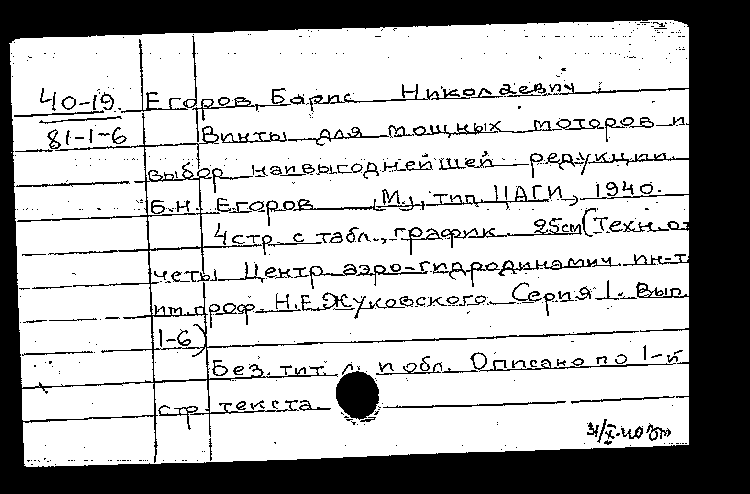 40-19. Егоров, Борис Николаевич.
81-1-6 Винты для мощных моторов и
выбор наивыгоднейшей редукции.
Б.Н. Егоров [М.], тип. ЦАГИ, 1940.
4стр. с табл., график. 25см (Техн. от
четы Центр. аэро-гидродинамич. ин-т.
им. проф. Н.Е. Жуковского. Серия 1. Вып.
1-6)
Без. тит. л. и обл. Описано по 1-й
стр. текста.